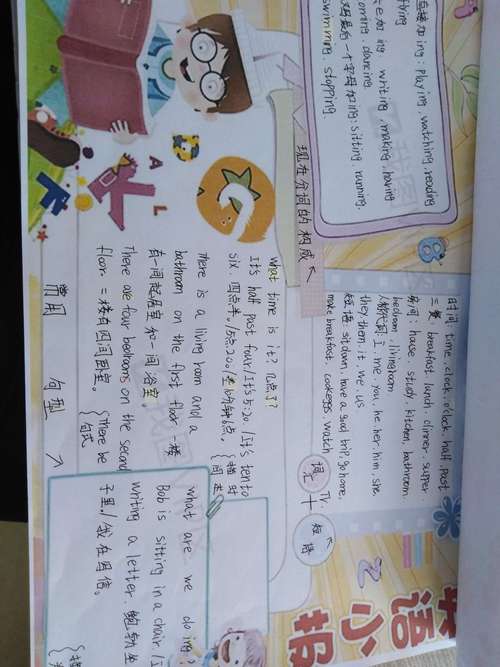 英语小报
直接加ing: playing, watching, reading
flying
加ing, writing, making, having
coming, dancing
最后一个字母加ing: sitting, running,
swimming, stopping
现在分词的构成
时间: time, clock, o'clock, half, past
三餐: breakfast, lunch, dinner, supper
房间: house, study, kitchen, bathroom,
bedroom, livingroom
人称代词: I, me, you, he, her, him, she
they, them, it, we, us
短语: sit down, have a good trip, go home,
make breakfast, cook eggs, watch
TV.
词汇
+
短语
what time is it? 几点了?
It's half past four/It's 5:20/It's ten to
six. 四点半。/5点20。/差10分钟6点。
There is a living room and a
bathroom on the first floor 一楼
有一间起居室和一间浴室.
There are four bedrooms on the second
floor. 二楼有四间卧室.
There be
句式
常用 句型
what are we doing?
Bob is sitting in a chair/I
writing a letter. 鲍勃坐
子里/我在写信。